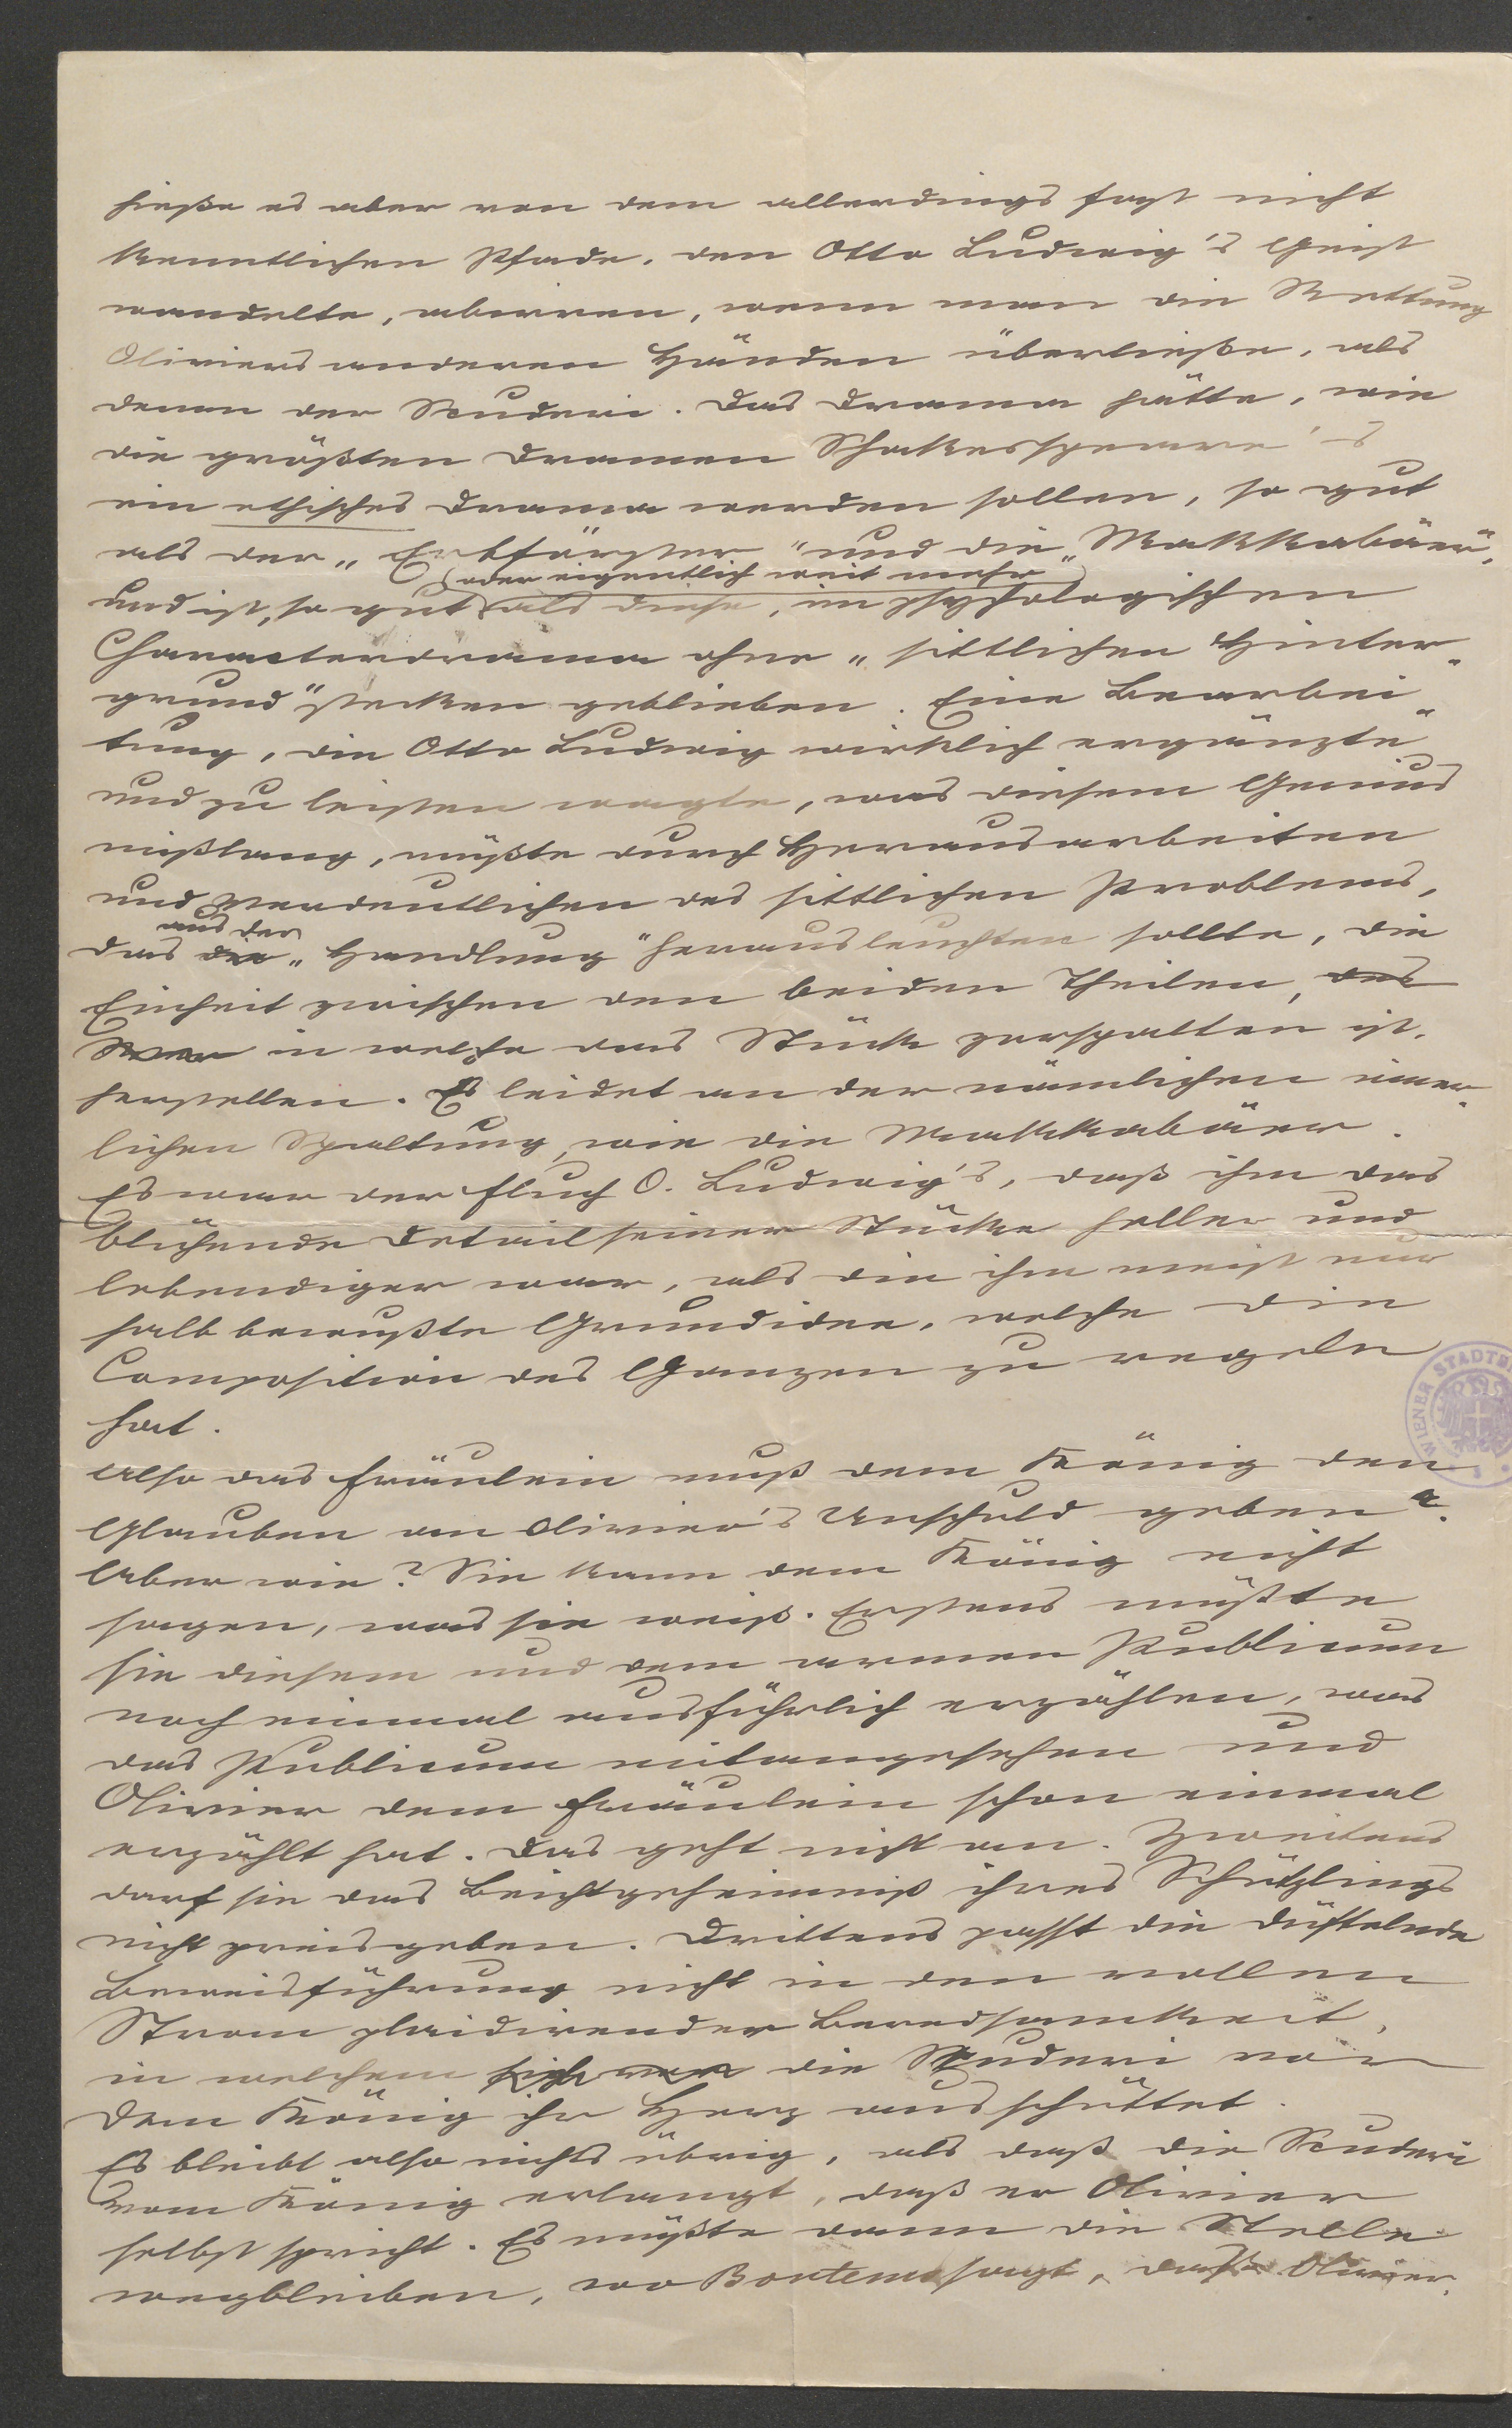 hieße es aber von dem allerdings fast nicht
kenntlichen Pfade, den Otto Ludwig's Geist
wandelte, abirren, wenn man die Rettung
Oliviers anderen Händen überließe, als
denen der Scuderi. Das Drama hätte, wie
die größten Dramen Shakespeare's
ein ethisches Drama werden sollen, so gut
als der „Erbförster" und die „Makkabäer",
(oder eigentlich weit mehr)
und ist, so gut als diese, im psychologischen
Characterdrama ohne „sittlichen Hinter-
grund" stecken geblieben. Eine Bearbei-
tung, die Otto Ludwig wirklich ergänzte
und zu leisten wagte, was diesem Genius
mißlang, müßte durch Herausarbeiten
und Verdeutlichen des sittlichen Problems,
aus der
das die „Handlung" herausleuchten sollte, die
Einheit zwischen den beiden Theilen, des
in welche das Stück zerspalten ist,
herstellen. Es leidet an der nämlichen inner-
lichen Spaltung, wie die Makkabäer.
Es war der Fluch O. Ludwig's, daß ihm das
blühende Detail seiner Stücke heller und
lebendiger war, als die ihm meist nur
halb bewußte Grundidee, welche die
Composition des Ganzen zu regeln
hat.
Also das Fräulein muß dem König den
Glauben an Olivier's Unschuld geben.
Aber wie? Sie kann dem König nicht
sagen, was sie weiß. Erstens müßte
sie diesem und dem armen Publicum
noch einmal ausführlich erzählen, was
das Publicum mitangesehen und
Olivier dem Fräulein schon einmal
erzählt hat. Das geht nicht an. Zweitens
darf sie das Beichtgeheimniß ihres Schützlings
nicht preisgeben. Drittens passt die düftelnde
Beweisführung nicht in den vollen
Strom plaidirender Beredsamkeit,
in welchem sich die Scuderi vor
dem König ihr Herz ausschüttet.
Es bleibt also nichts übrig, als daß die Scuderi
vom König erlangt, daß er Olivier
selbst spricht. Es müßte dann die Stelle
wegbleiben, wo Bontems sagt, daß Olivier
WIENER STADTBI